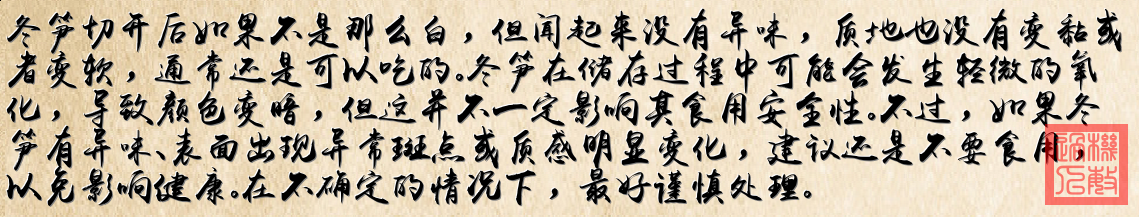 冬笋切开后如果不是那么白，但闻起来没有异味，质地也没有变黏或
者变软，通常还是可以吃的。冬笋在储存过程中可能会发生轻微的氧
化，导致颜色变暗，但这并不一定影响其食用安全性。不过，如果冬
笋有异味、表面出现异常斑点或质感明显变化，建议还是不要食用，
以免影响健康。在不确定的情况下，最好谨慎处理。